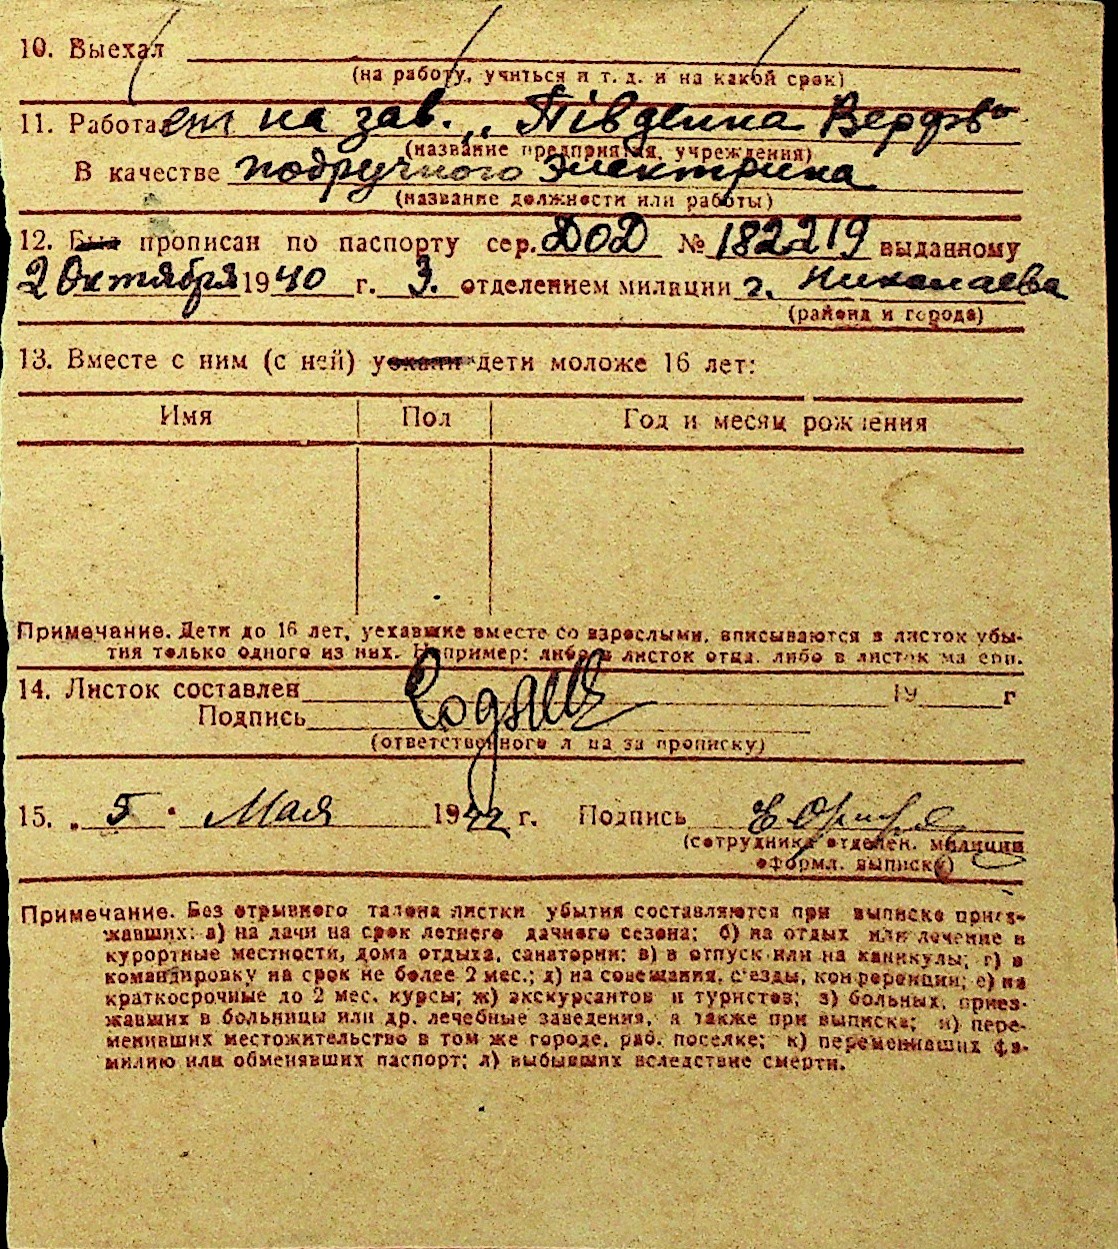 10. Выехал
(на работу, учиться и т. д. и на какой срок)
11. Работает на зав. „Південна Верфь"
(название предприятия, учреждения)
В качестве подручного электрика
(название должности или работы)
12. Был прописан по паспорту сер. ДОД № 182219 выданному
2 Октября 1940 г. 3. отделением милиции г. Николаева
(района и города)
13. Вместе с ним (с ней) уехали дети моложе 16 лет:
Имя Пол Год и месяц рождения
Примечание. Дети до 16 лет, уехавшие вместе со взрослыми, вписываются в листок убы-
тия только одного из них. Например: либо в листок отца, либо в листок матери.
14. Листок составлен 19 г
Подпись
(ответственного лица за прописку)
15. „5" Мая 1942 г. Подпись
(сотрудника отделен. милиции
оформл. выписку)
Примечание. Без отрывного талона листки убытия составляются при выписке приез-
жавших: а) на дачи на срок летнего дачного сезона; б) на отдых или лечение в
курортные местности, дома отдыха, санатории; в) в отпуск или на каникулы; г) в
командировку на срок не более 2 мес.; д) на совещания, с'езды, конференции; е) на
краткосрочные до 2 мес. курсы; ж) экскурсантов и туристов; з) больных, приез-
жавших в больницы или др. лечебные заведения, а также при выписке; и) пере-
менивших местожительство в том же городе, раб. поселке; к) переменивших фа-
милию или обменявших паспорт; л) выбывших вследствие смерти.